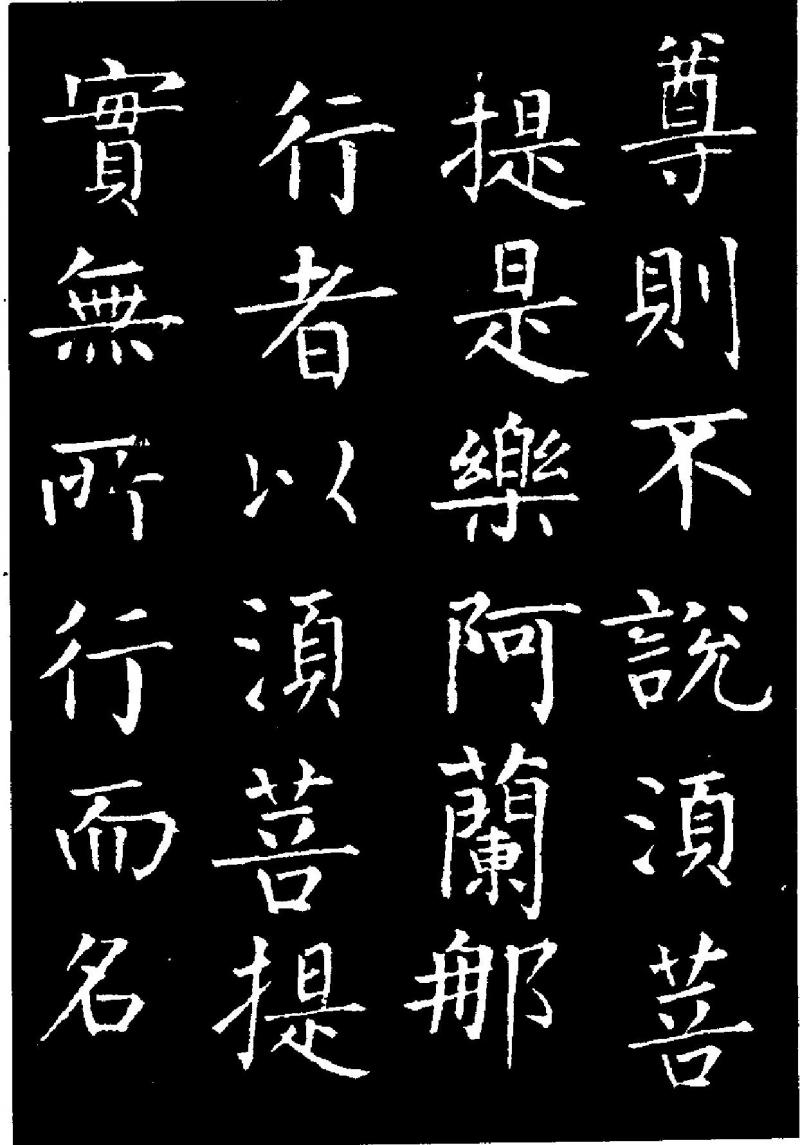 尊則不說湏菩
提是樂阿蘭那
行者以湏菩提
實無所行而名